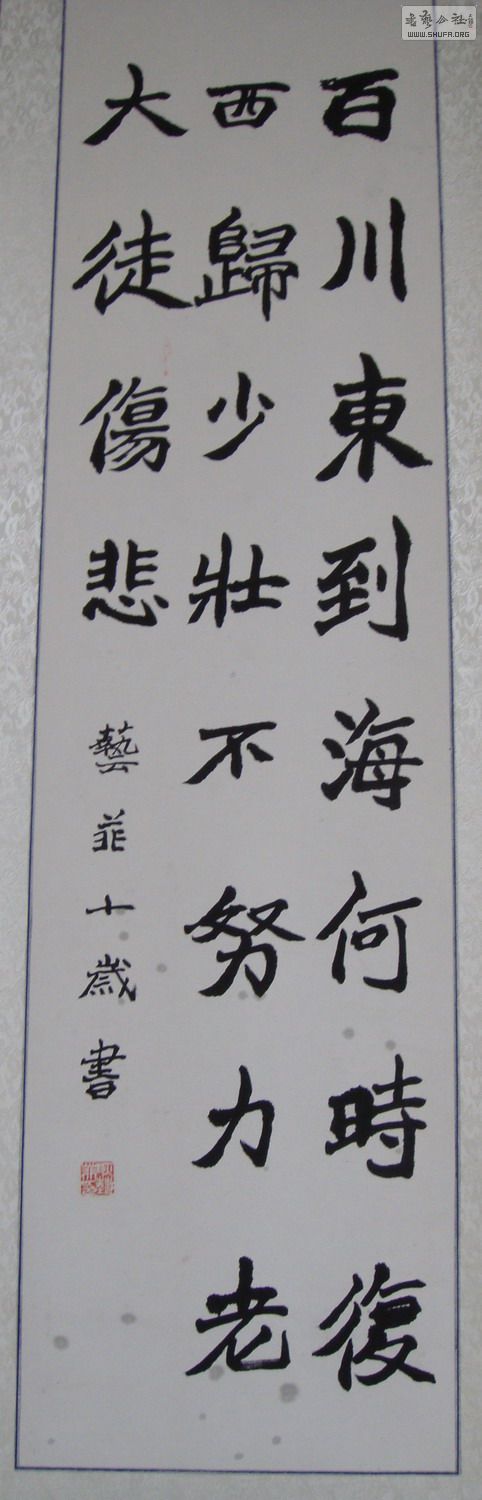 百川東到海何時復
西歸少壯不努力老
大徒傷悲
藝菲十歲書
WWW.SHUFA.ORG